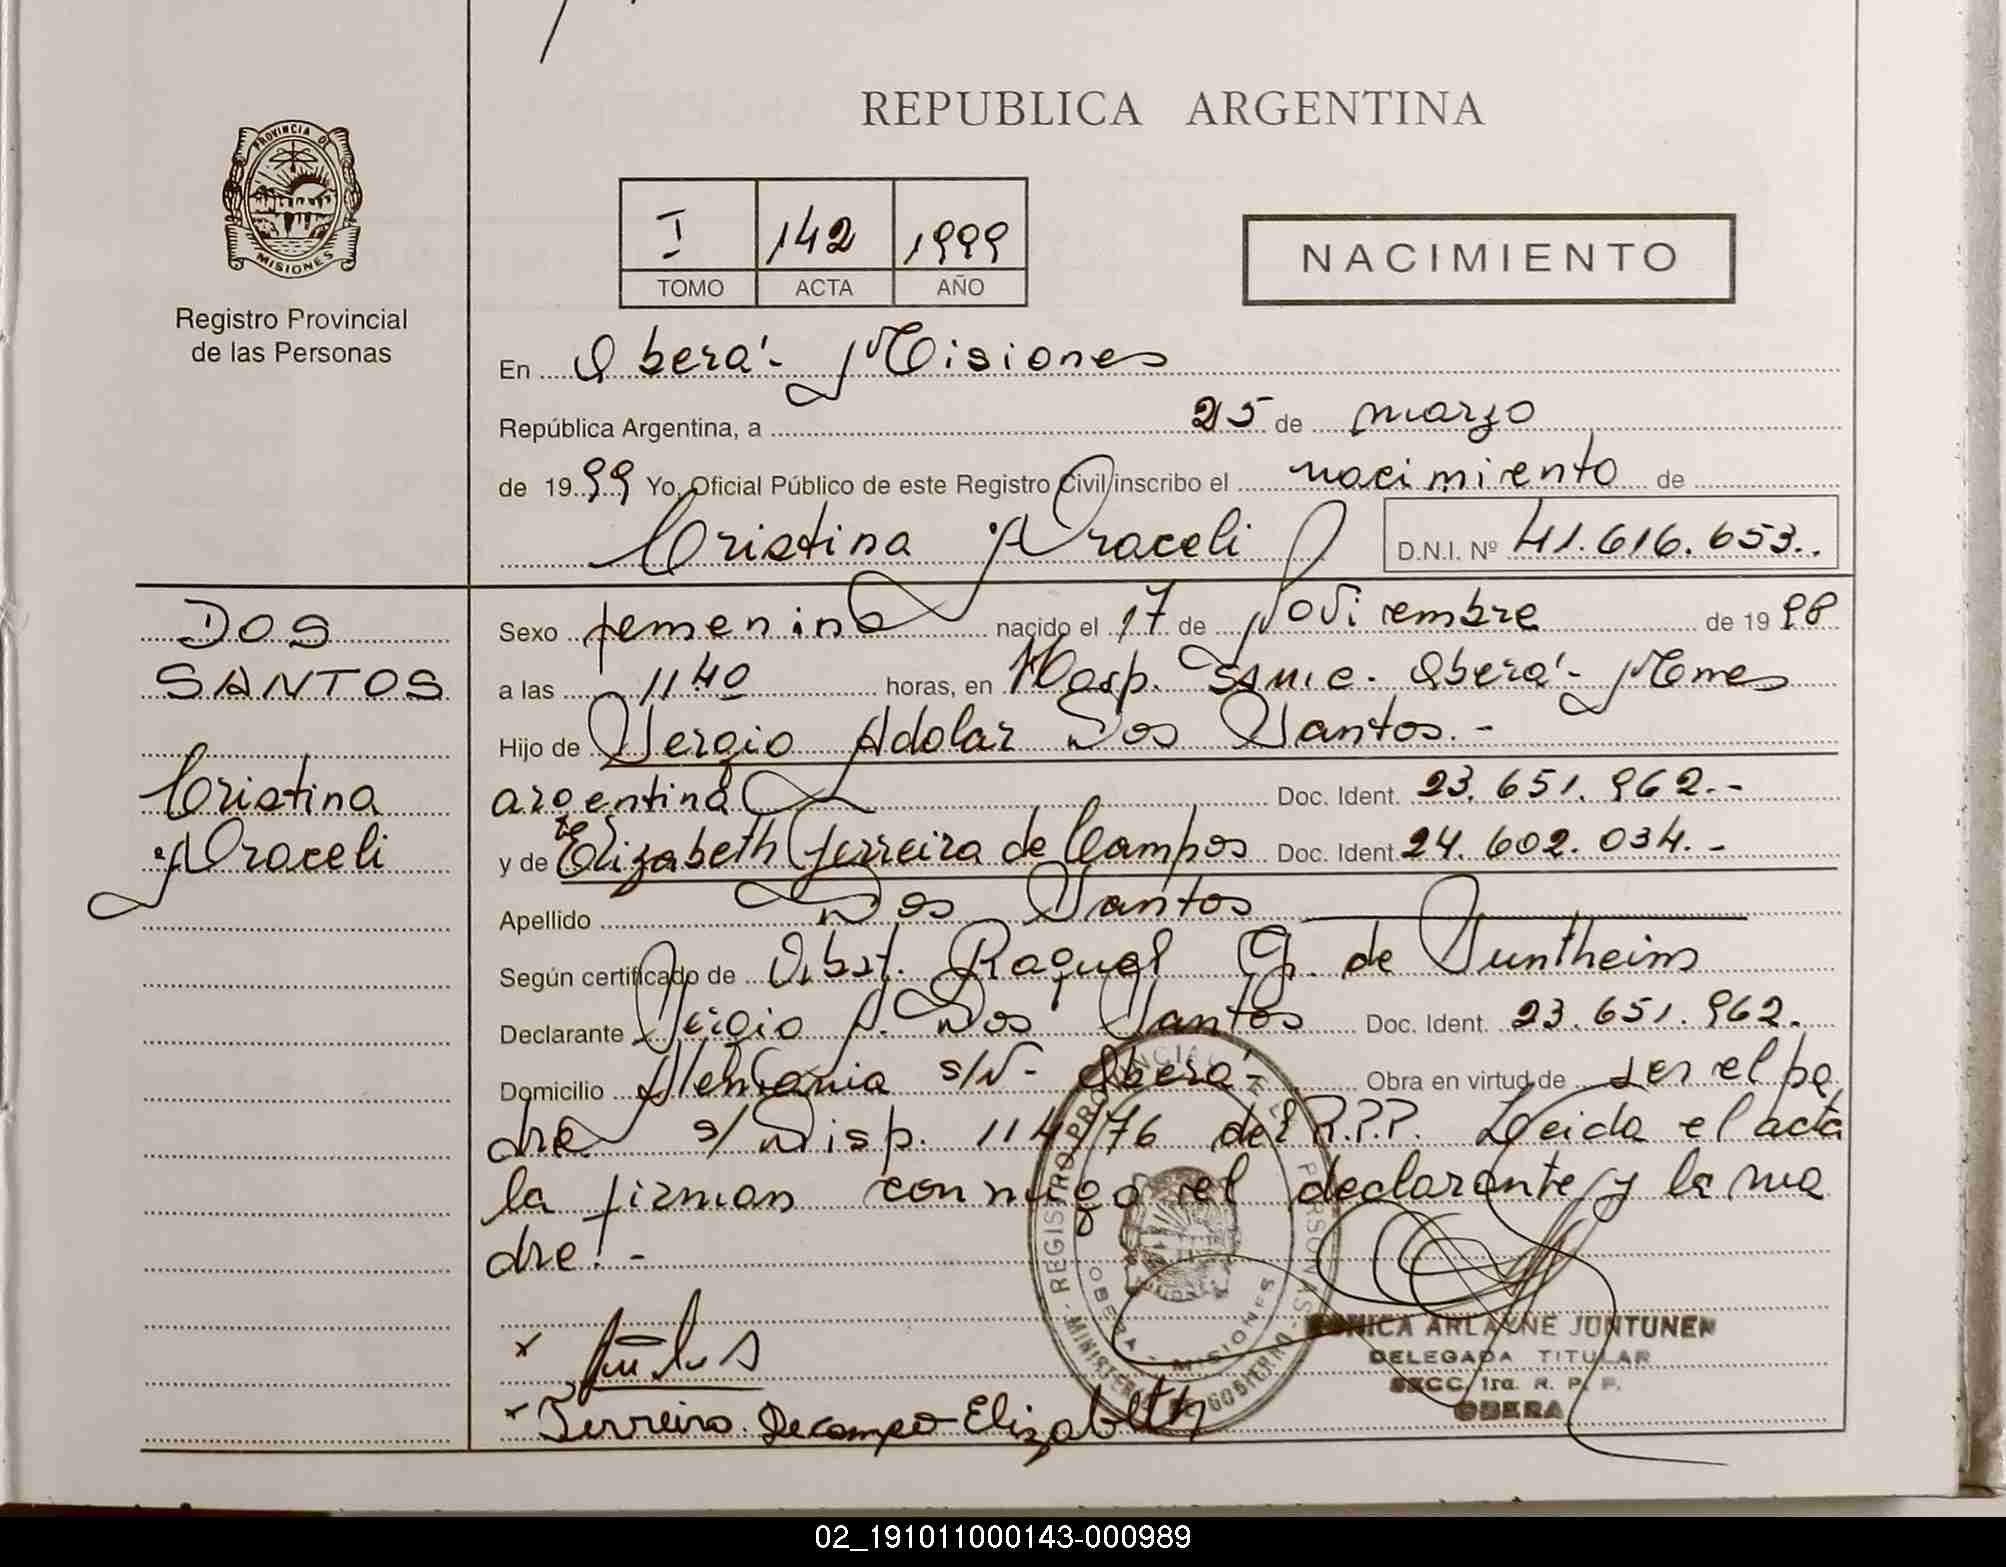 REPUBLICA ARGENTINA
PROVINCIA DE
MISIONES
Registro Provincial
de las Personas
I 142 1999
TOMO ACTA AÑO
NACIMIENTO
En Oberá - Misiones
República Argentina, a 25 de marzo
de 1999 Yo, Oficial Público de este Registro Civil inscribo el nacimiento de
Cristina Araceli D.N.I. Nº 41.616.653..
DOS
SANTOS
Cristina
Araceli
Sexo femenino nacido el 17 de Noviembre de 1998
a las 11 40 horas, en Hosp. Samic. Oberá - Mnes
Hijo de Sergio Adolar Dos Santos. -
argentina Doc. Ident. 23.651.962.-
y de Elizabeth Ferreira de Campos Doc. Ident. 24.602.034.-
Apellido Dos Santos
Según certificado de Obst. Raquel G. de Suntheim
Declarante Sergio A. Dos Santos Doc. Ident. 23.651.962.
Domicilio Alemania s/N - Oberá - Obra en virtud de ser el pa
dre s/ Disp. 114/76 del R.P.P. Leida el acta
la firman conmigo el declarante y la ma
dre. -
REGISTRO PROVINCIAL DE LAS PERSONAS
OBERA - MISIONES
MINISTERIO DE GOBIERNO
MONICA ARLAYNE JUNTUNEN
DELEGADA TITULAR
SECC. 1ra. R. P. P.
OBERA
x
x Ferreira Decampo Elizabeth
02_191011000143-000989